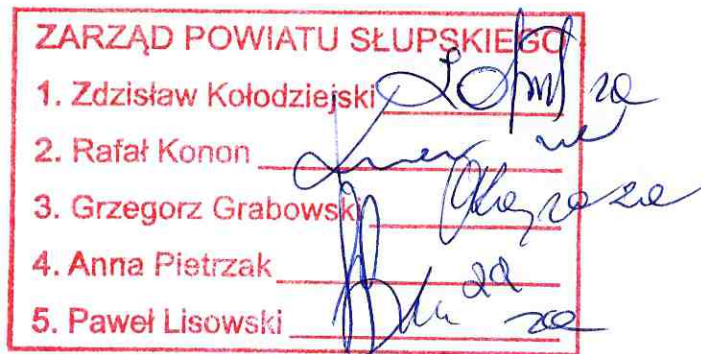 ZARZĄD POWIATU SŁUPSKIEGO
1. Zdzisław Kołodziejski za
2. Rafał Konon
3. Grzegorz Grabowski za
4. Anna Pietrzak za
5. Paweł Lisowski za